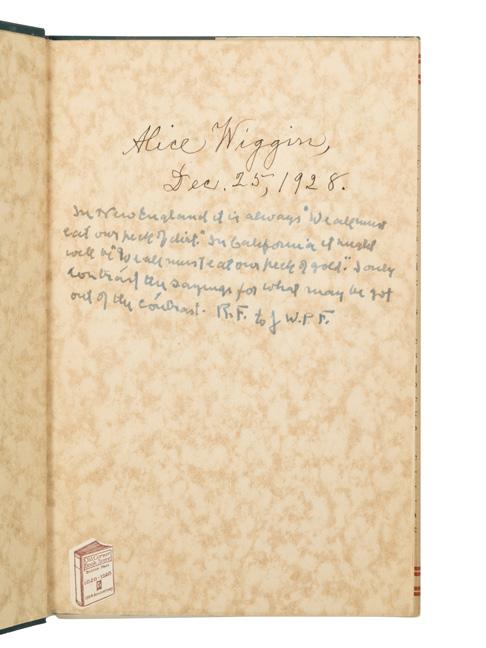 Alice Wiggin,
Dec. 25, 1928.
In New England it is always "We all must
eat our peck of dirt." In California it might
well be "We all must eat our peck of gold." I only
contrast the sayings for what may be got
out of the contrast. R.F. to J W.P.F.
Old Corner
Book Store
Boston, Mass.